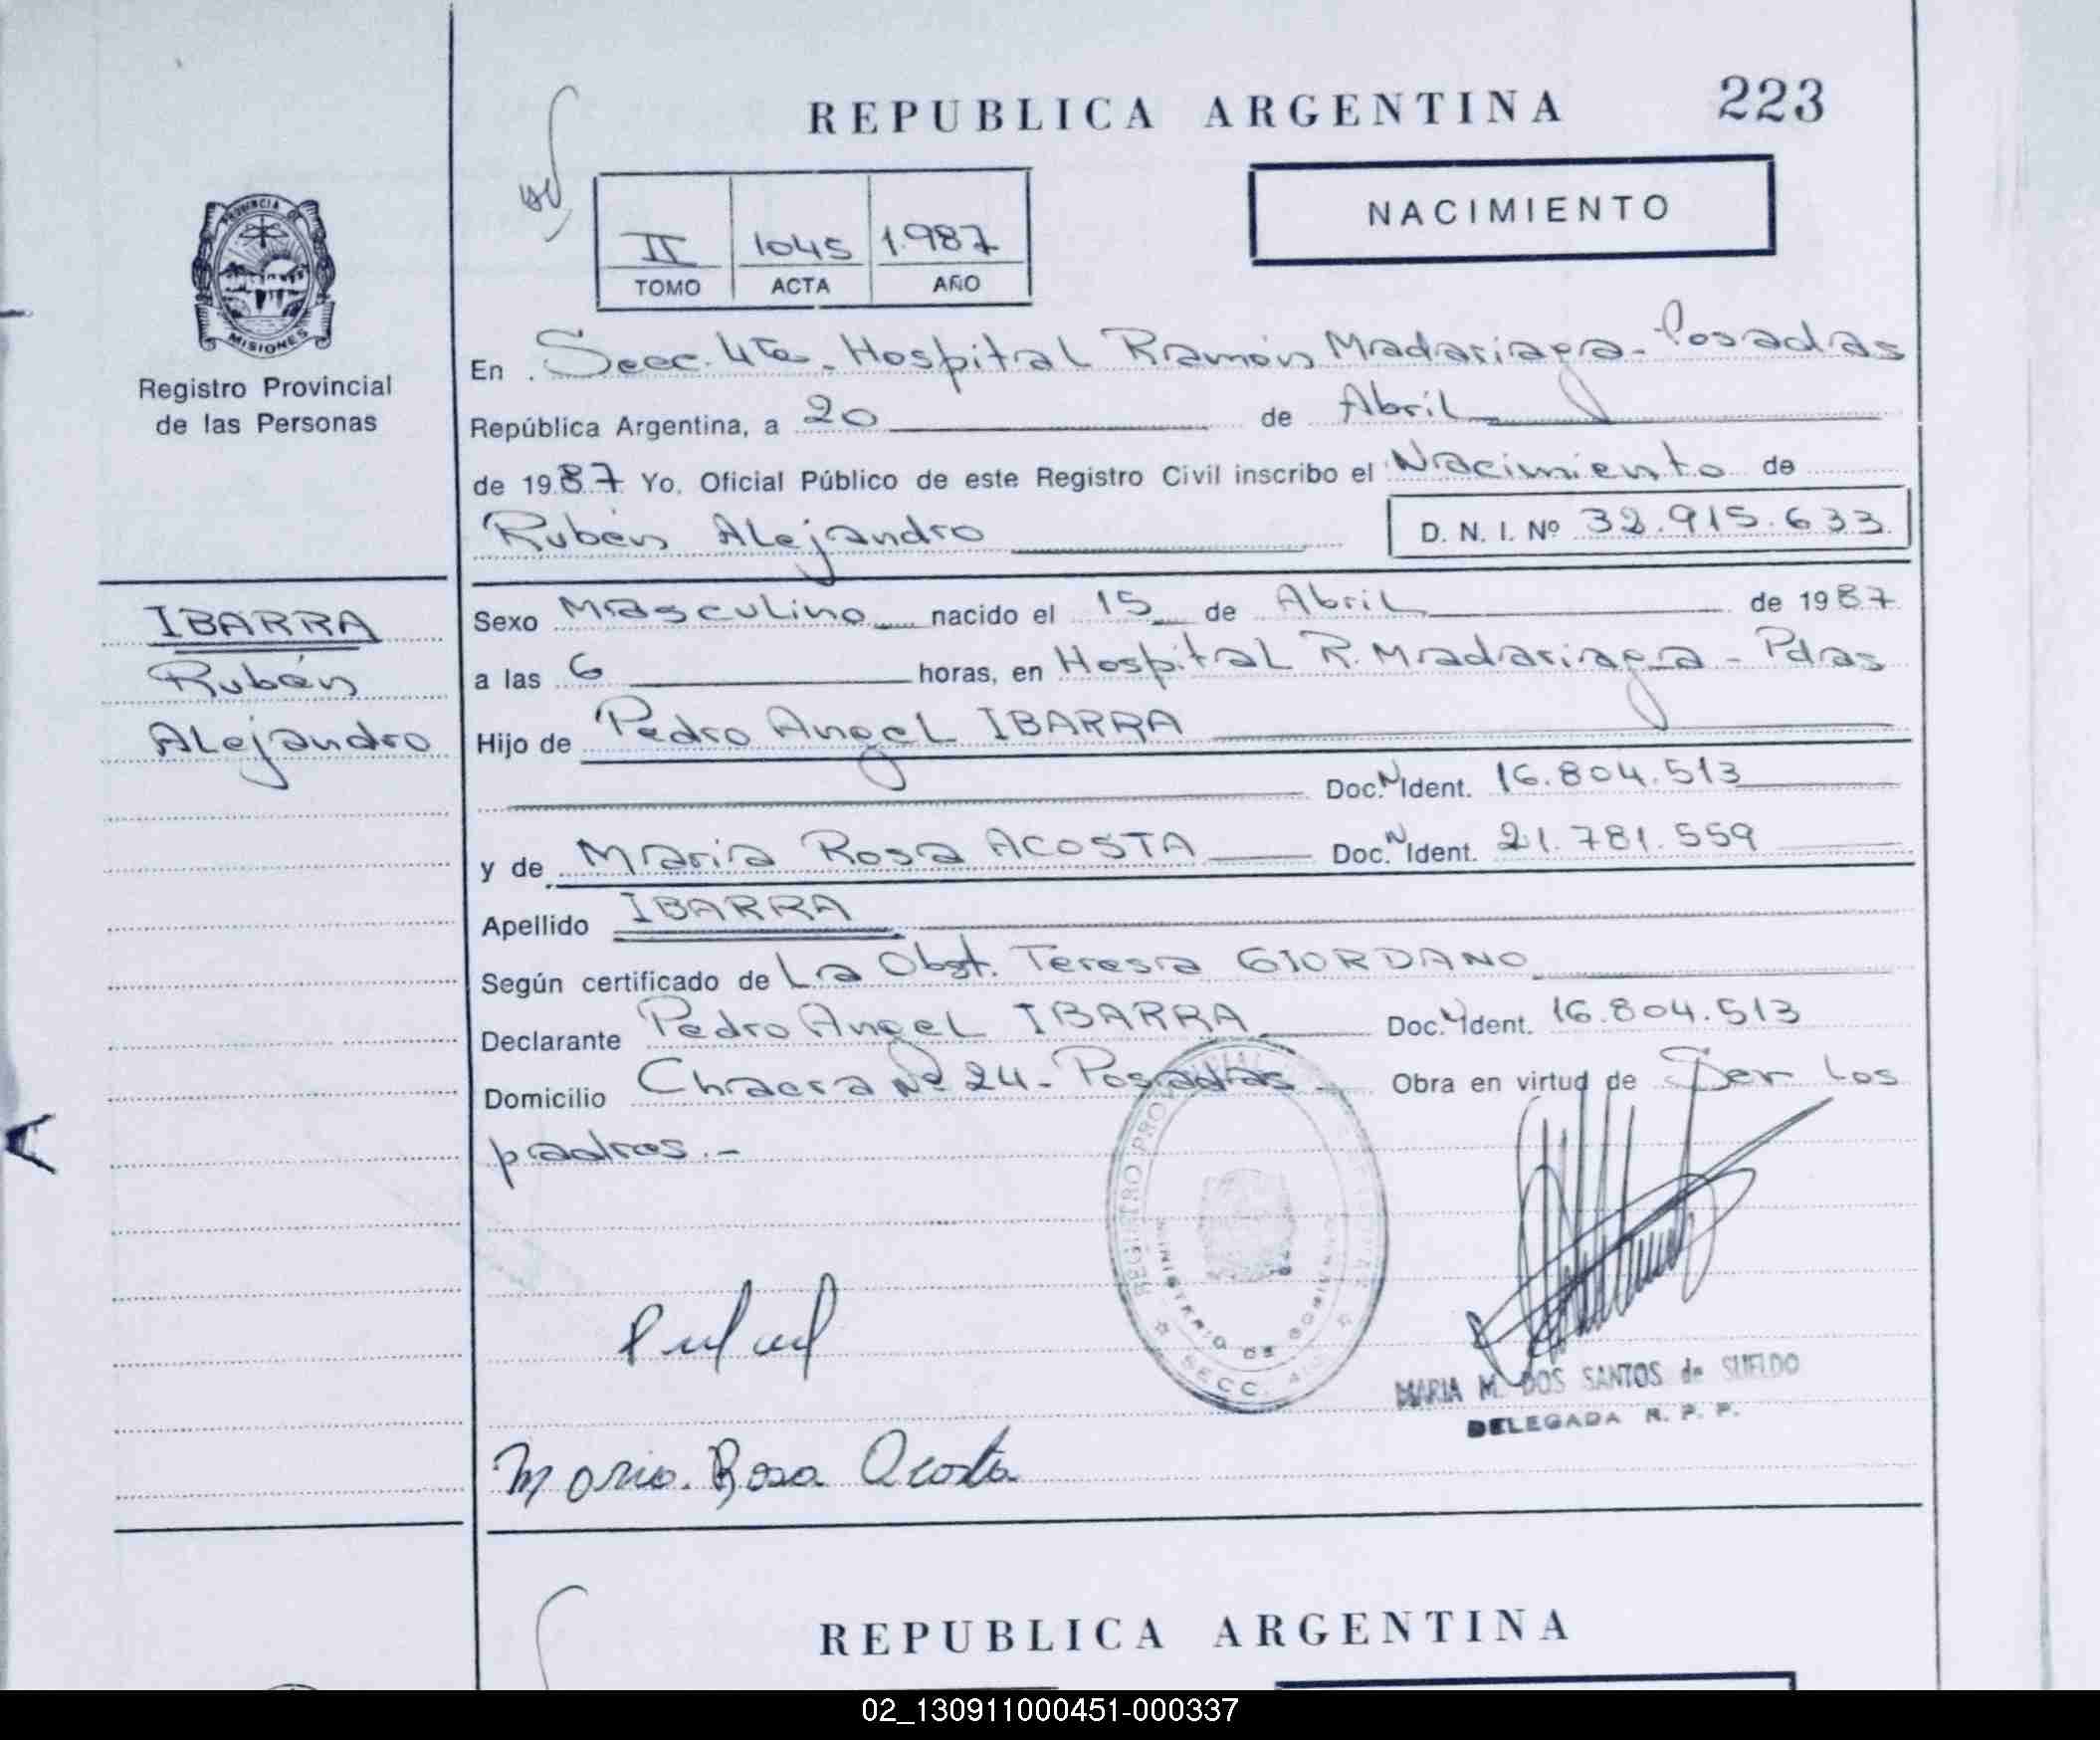 REPUBLICA ARGENTINA 223
NACIMIENTO
II 1045 1.987
TOMO ACTA AÑO
PROVINCIA DE
MISIONES
Registro Provincial
de las Personas
En Secc. 4ta. Hospital Ramón Madariaga - Posadas
República Argentina, a 20 de Abril
de 1987 Yo, Oficial Público de este Registro Civil inscribo el Nacimiento de
Rubén Alejandro D. N. I. Nº 32.915.633
IBARRA
Rubén
Alejandro
Sexo Masculino nacido el 15 de Abril de 1987
a las 6 horas, en Hospital R. Madariaga - Pdas
Hijo de Pedro Angel IBARRA
Doc. N Ident. 16.804.513
y de Maria Rosa ACOSTA Doc. N Ident. 21.781.559
Apellido IBARRA
Según certificado de La Obst. Teresa GIORDANO
Declarante Pedro Angel IBARRA Doc. Ident. 16.804.513
Domicilio Chacra Nº 24 - Posadas Obra en virtud de Ser los
padres.-
REGISTRO PROVINCIAL
MINISTERIO DE GOBIERNO
SECC.
MARIA M. DOS SANTOS de SUELDO
DELEGADA R. P. P.
Maria Rosa Acosta
A
REPUBLICA ARGENTINA
02_130911000451-000337